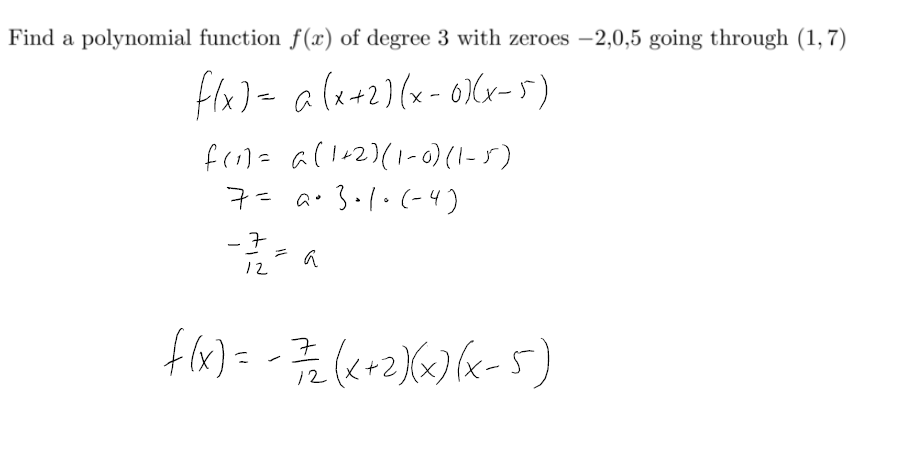 Find a polynomial function f(x) of degree 3 with zeroes −2,0,5 going through (1, 7)
f(x) = a(x+2)(x-0)(x-5)
f(1) = a(1+2)(1-0)(1-5)
7 = a·3·1·(-4)
-7/12 = a
f(x) = -7/12 (x+2)(x)(x-5)